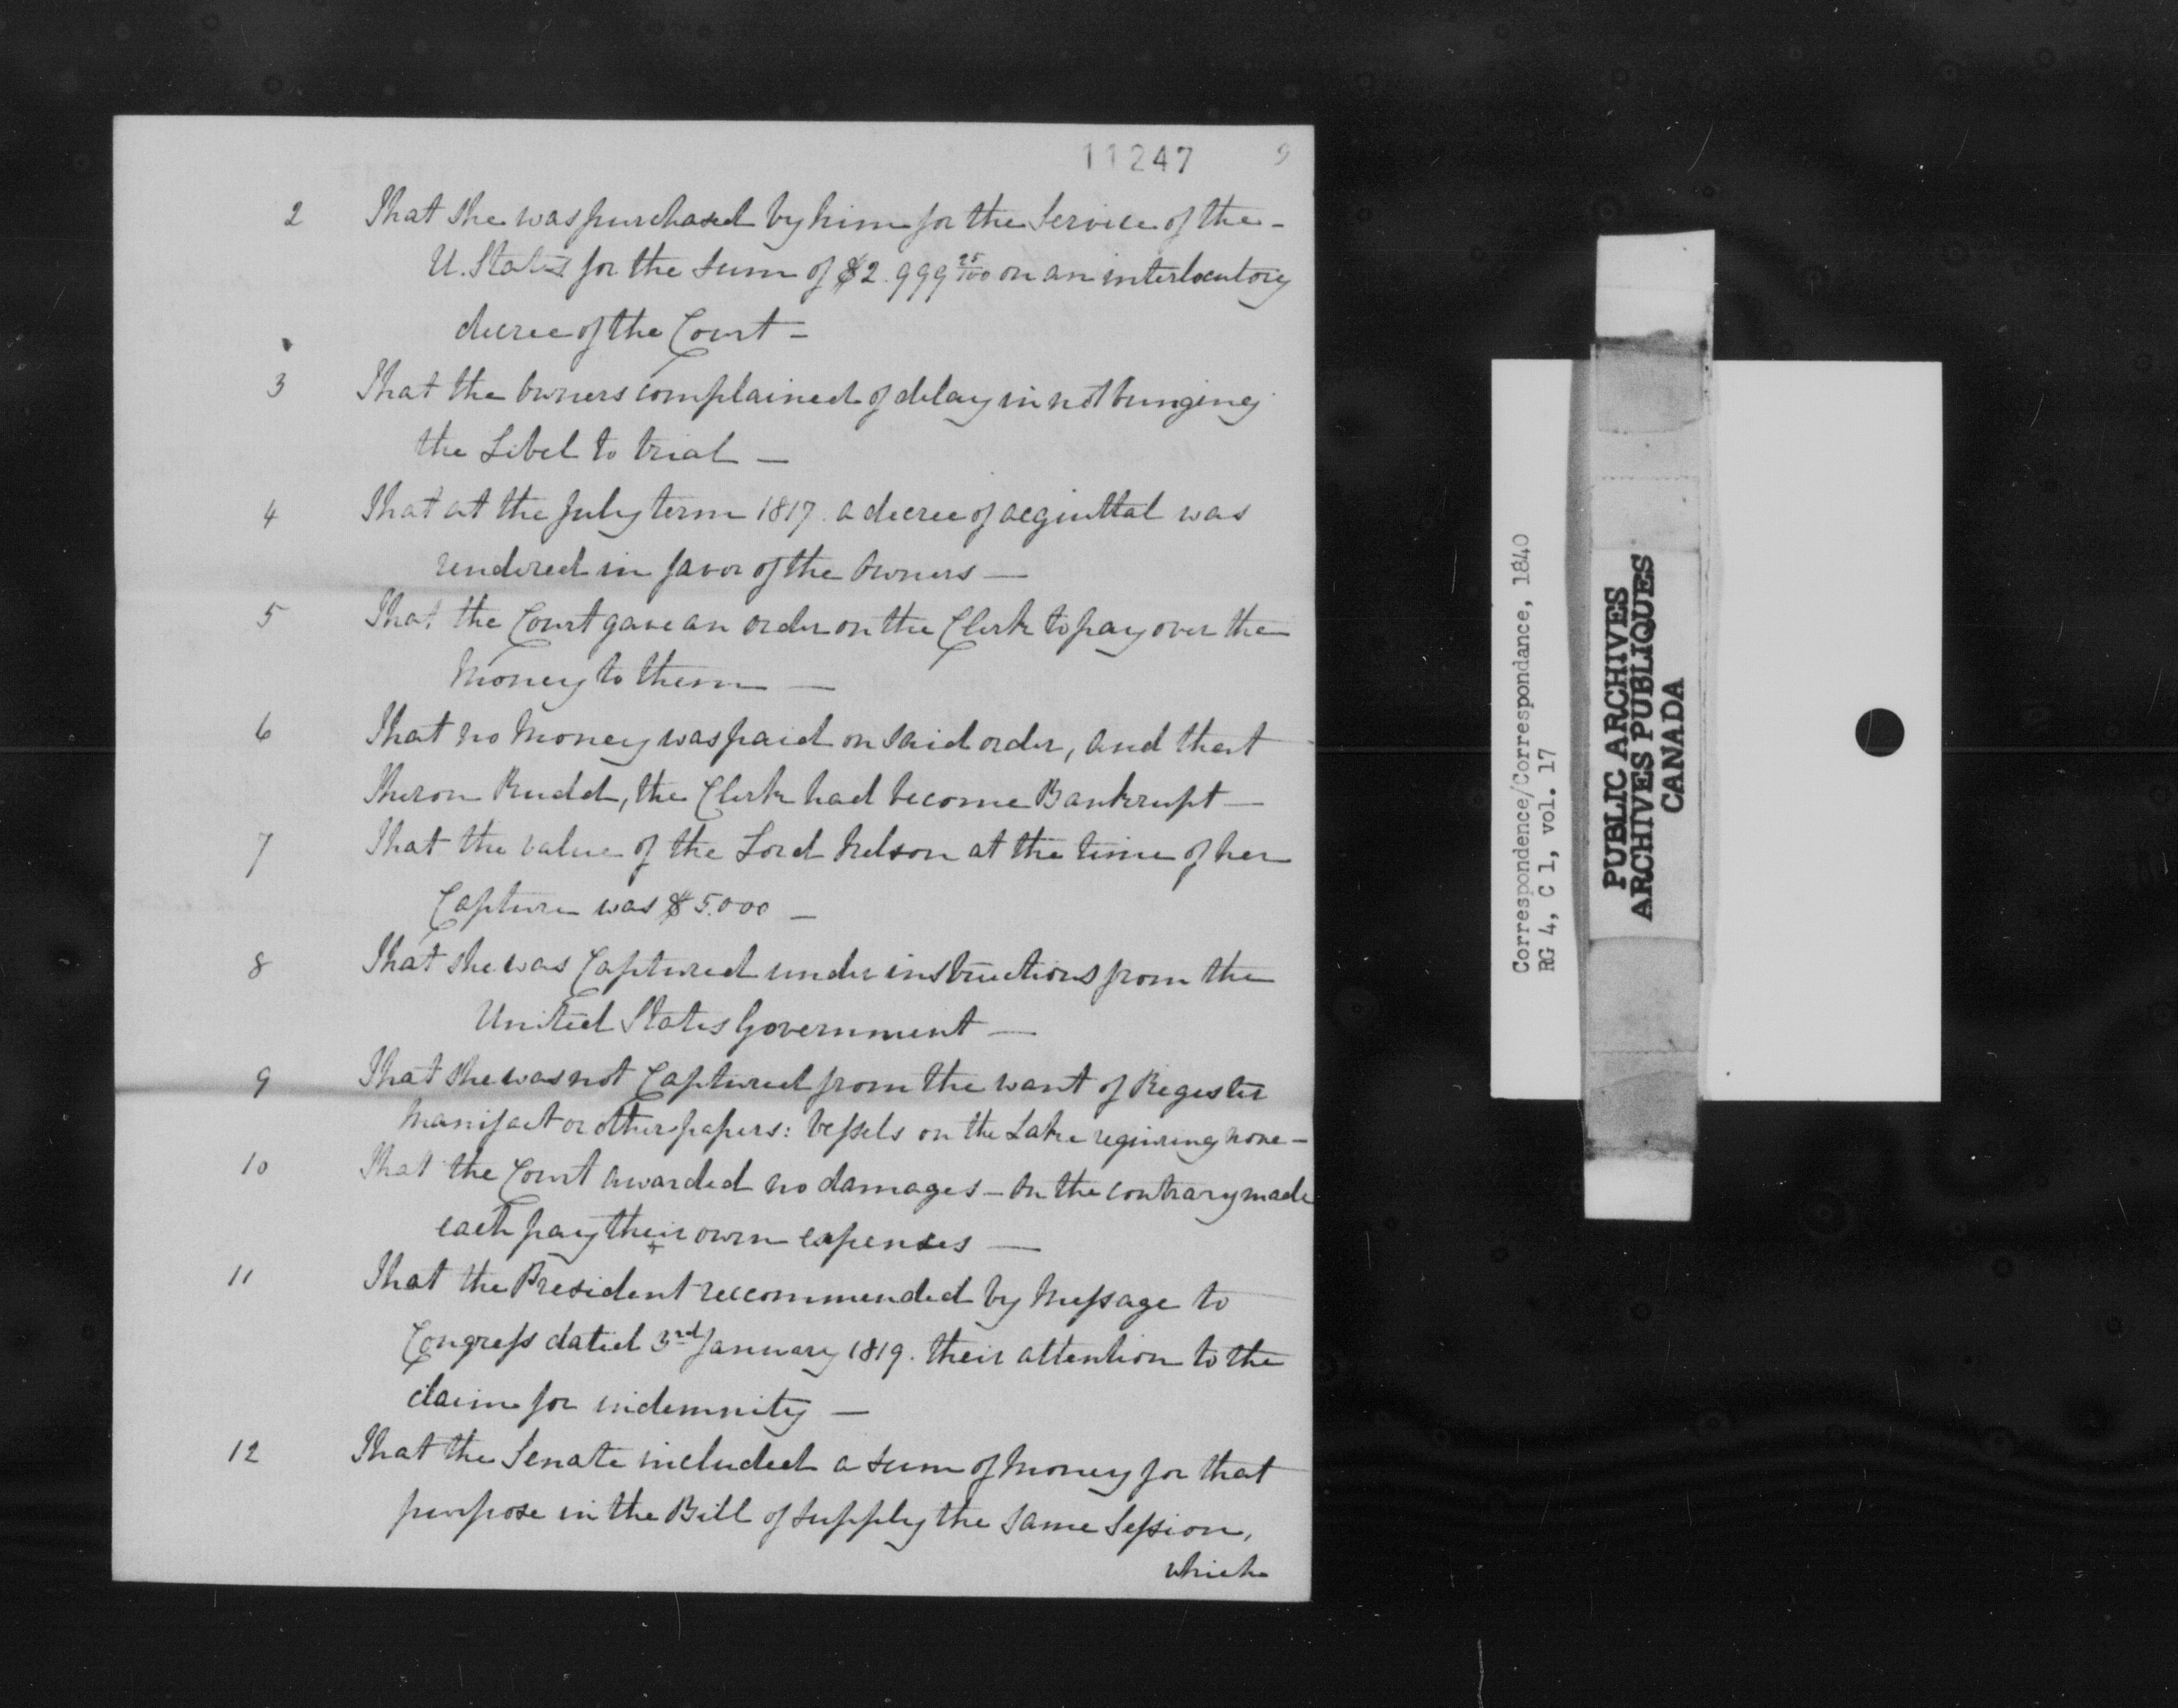 11247 9
2 That she was purchased by him for the Service of the -
U. States for the sum of $2.999 25/100 on an interlocutory
decree of the Court -
3 That the owners complained of delay in not bringing
the Libel to trial -
4 That at the July term 1817. a decree of acquittal was
rendered in favor of the owners -
5 That the Court gave an order on the Clerk to pay over the
Money to them -
6 That no Money was paid on said order, and that
Theron Rudd, the Clerk had become Bankrupt -
7 That the value of the Lord Nelson at the time of her
Capture was $5.000 -
8 That she was Captured under instructions from the
United States Government -
9 That she was not Captured from the want of Register
Manifact or other papers: Vessels on the Lake requiring none -
10 That the Court awarded no damages - on the contrary made
each pay their own expenses -
11 That the President reccommended by Message to
Congress dated 3rd January 1819. their attention to the
claim for indemnity -
12 That the Senate included a sum of Money for that
purpose in the Bill of supply the same Session,
which
Correspondence/Correspondance, 1840
RG 4, C 1, vol. 17
PUBLIC ARCHIVES
ARCHIVES PUBLIQUES
CANADA